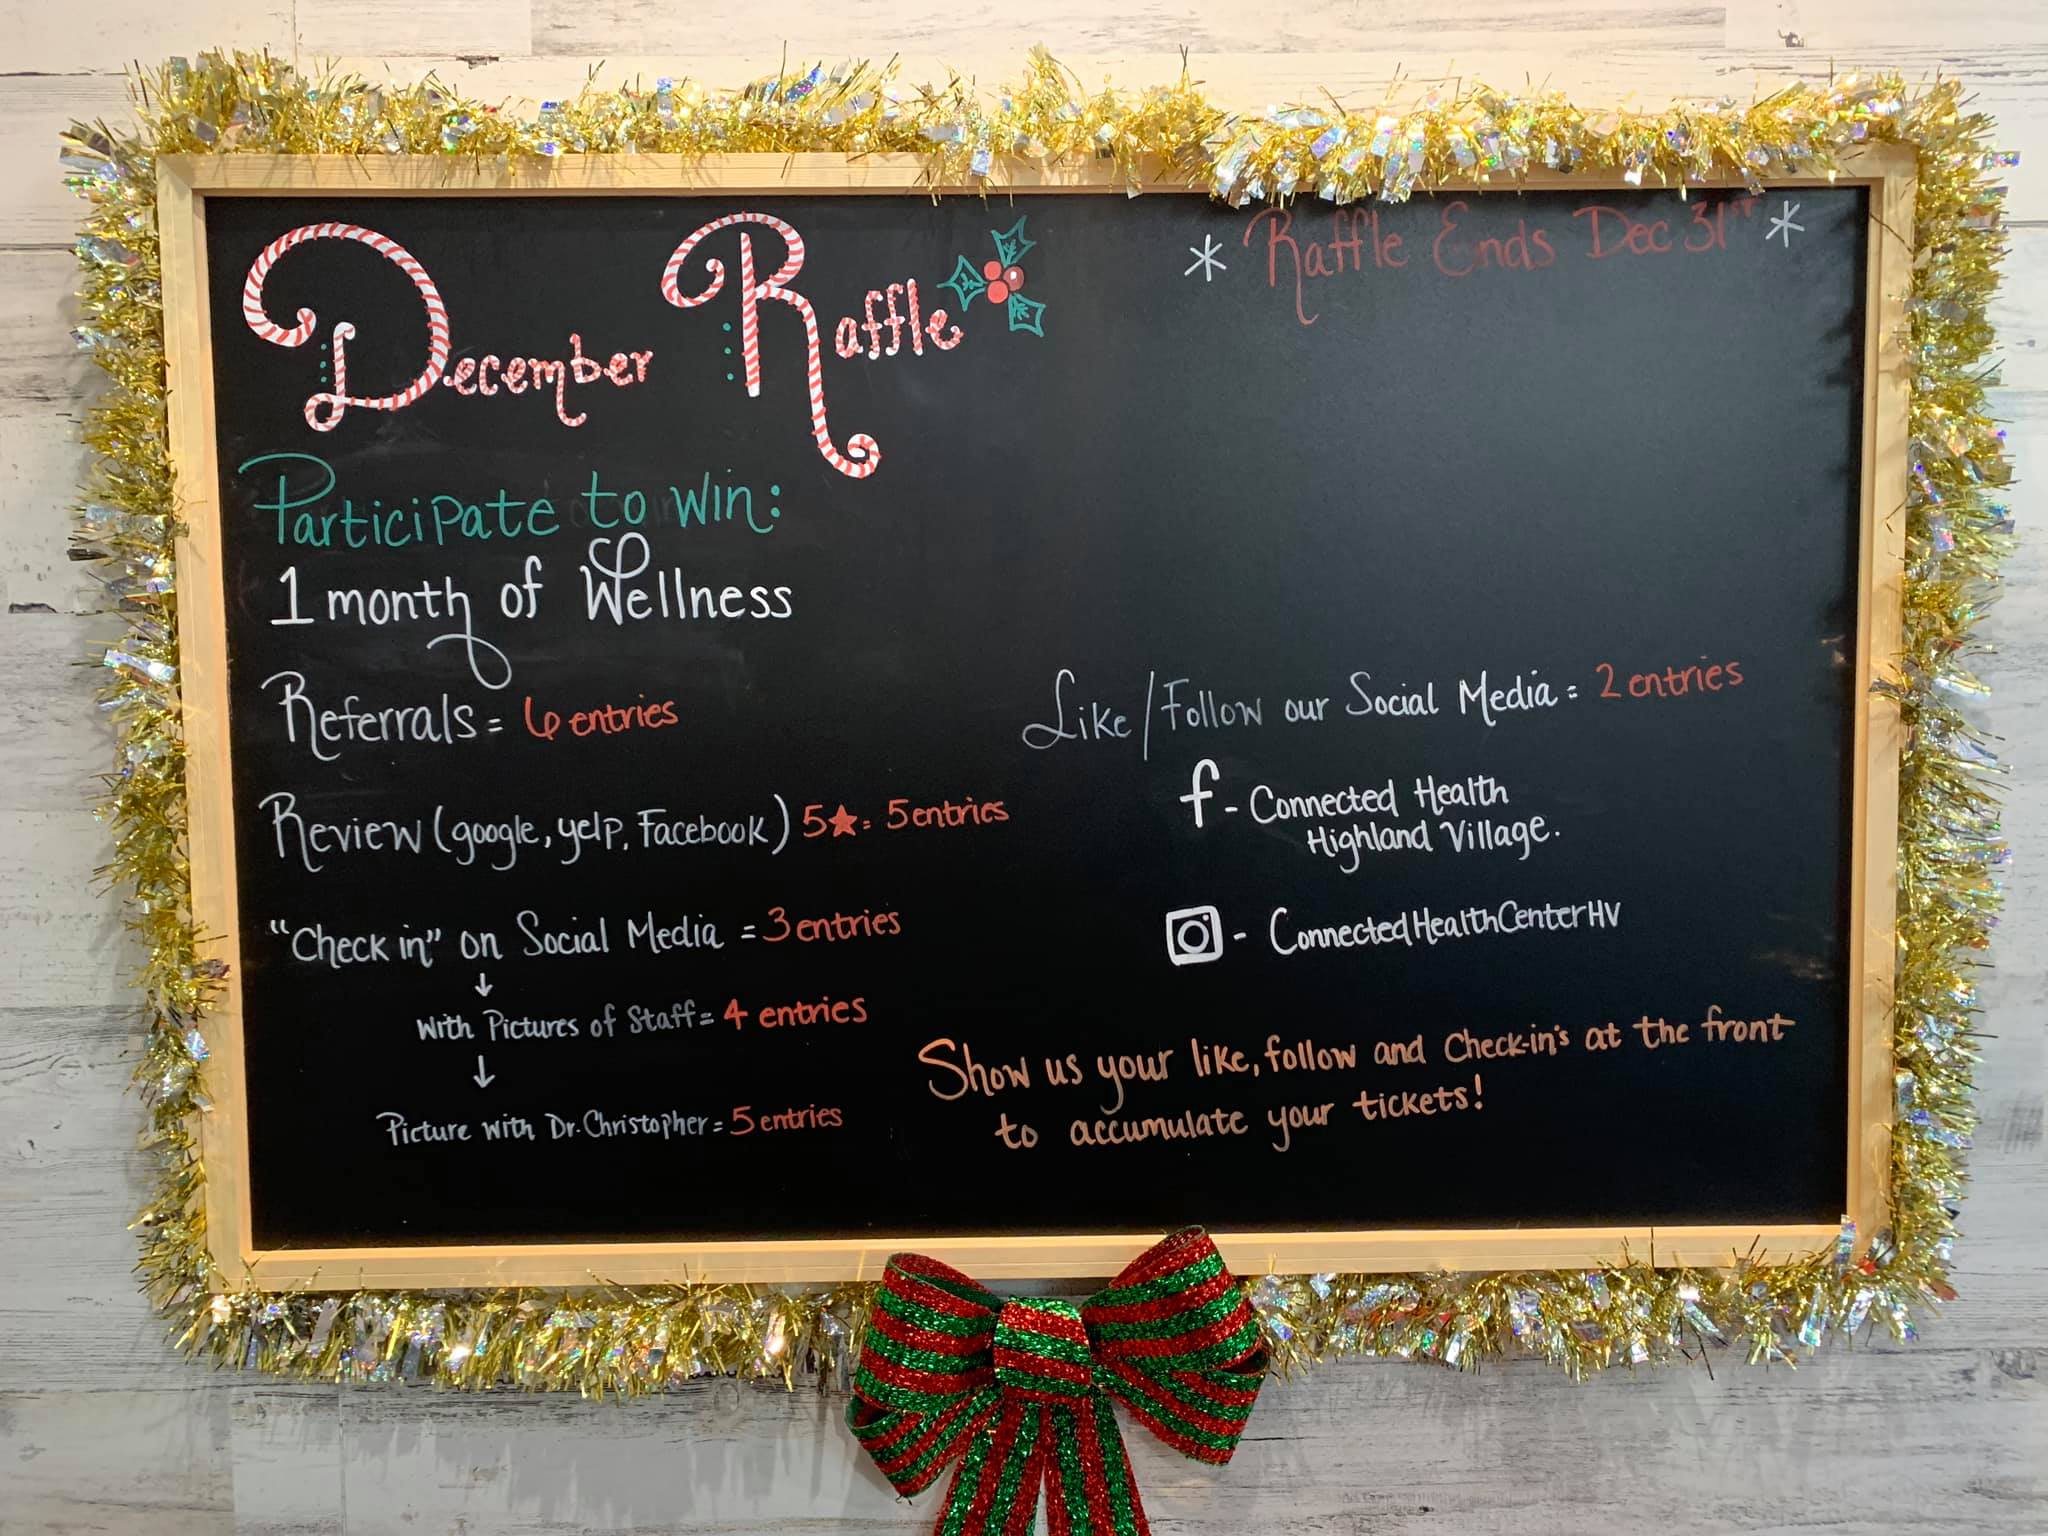 December Raffle
* Raffle Ends Dec 31st *
Participate to win:
1 month of Wellness
Referrals = 6 entries
Review (google, yelp, Facebook) 5★= 5 entries
"Check in" on Social Media = 3 entries
↓
With Pictures of Staff = 4 entries
↓
Picture with Dr. Christopher = 5 entries
Like/Follow our Social Media = 2 entries
f - Connected Health
Highland Village.
- ConnectedHealthCenterHV
Show us your like, follow and Check-in's at the front
to accumulate your tickets!